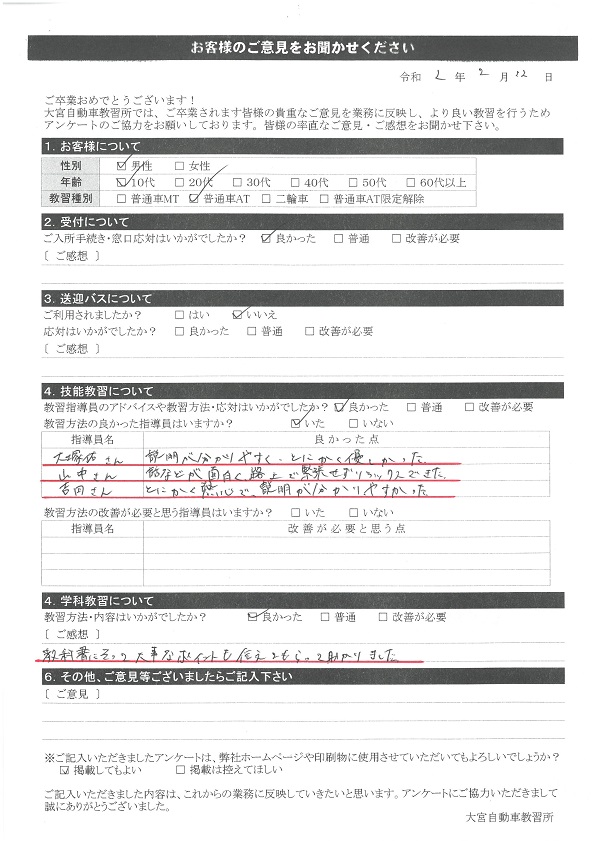 お客様のご意見をお聞かせください
令和 2 年 2 月 12 日
ご卒業おめでとうございます！
大宮自動車教習所では、ご卒業されます皆様の貴重なご意見を業務に反映し、より良い教習を行うため
アンケートのご協力をお願いしております。皆様の率直なご意見・ご感想をお聞かせ下さい。
1. お客様について
性別 ☑ 男性 □ 女性
年齢 ☑ 10代 □ 20代 □ 30代 □ 40代 □ 50代 □ 60代以上
教習種別 □ 普通車MT ☑ 普通車AT □ 二輪車 □ 普通車AT限定解除
2. 受付について
ご入所手続き・窓口応対はいかがでしたか？ ☑ 良かった □ 普通 □ 改善が必要
［ ご感想 ］
3. 送迎バスについて
ご利用されましたか？ □ はい ☑ いいえ
応対はいかがでしたか？ □ 良かった □ 普通 □ 改善が必要
［ ご感想 ］
4. 技能教習について
教習指導員のアドバイスや教習方法・応対はいかがでしたか？ ☑ 良かった □ 普通 □ 改善が必要
教習方法の良かった指導員はいますか？ ☑ いた □ いない
指導員名 良かった点
大塚佑さん 説明が分かりやすく、とにかく優しかった。
山中さん 話などが面白く、路上で緊張せずリラックスできた。
吉田さん とにかく熱心で、説明が分かりやすかった
教習方法の改善が必要と思う指導員はいますか？ □ いた □ いない
指導員名 改善が必要と思う点
4. 学科教習について
教習方法・内容はいかがでしたか？ ☑ 良かった □ 普通 □ 改善が必要
［ ご感想 ］
教科書にそって大事なポイントも伝えてもらって助かりました
6. その他、ご意見等ございましたらご記入下さい
［ ご意見 ］
※ご記入いただきましたアンケートは、弊社ホームページや印刷物に使用させていただいてもよろしいでしょうか？
☑ 掲載してもよい □ 掲載は控えてほしい
ご記入いただきました内容は、これからの業務に反映していきたいと思います。アンケートにご協力いただきまして
誠にありがとうございました。
大宮自動車教習所